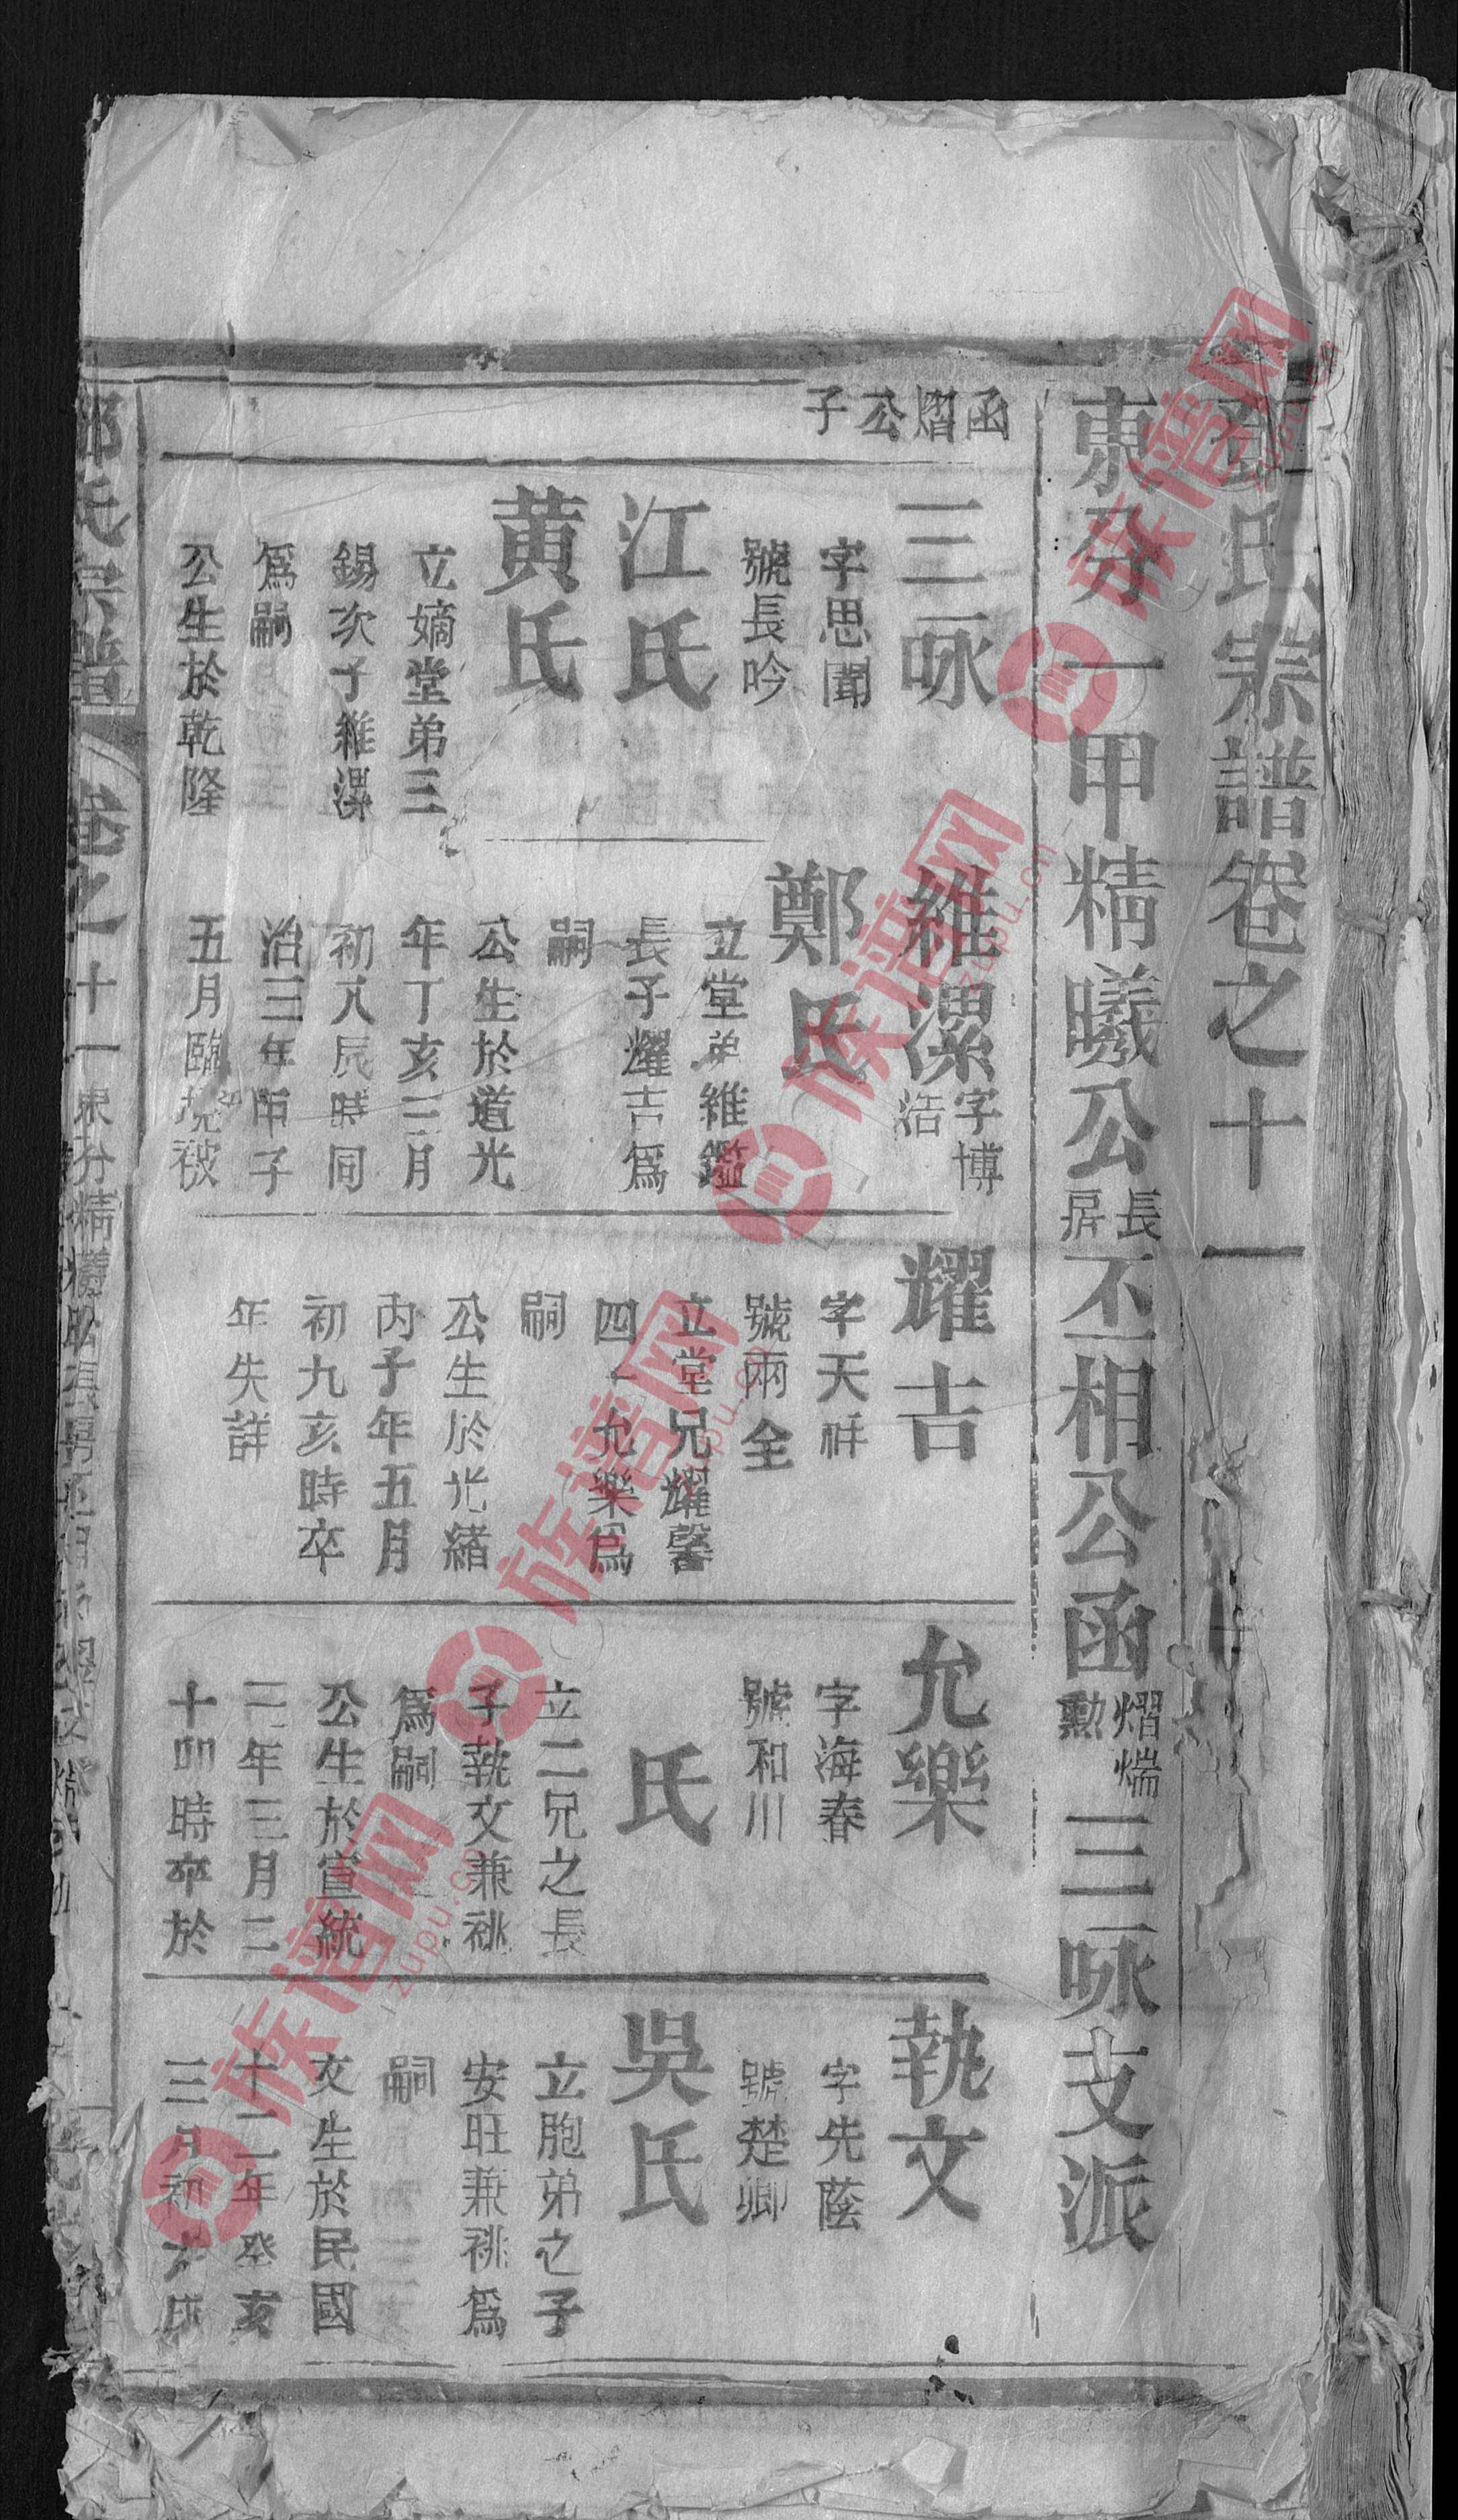 氏宗譜卷之十一
東分一甲精曦公長房丕相公函熠煓勲三咏支派
函熠公子
三咏
字思聞
號長吟
江氏
黄氏
立嫡堂弟三
錫次子維漯
爲嗣
公生於乾隆
維漯字博浩
鄭氏
立堂弟維鑑
長子耀吉爲
嗣
公生於道光
年丁亥三月
初八辰時同
治三年甲子
五月臨境被
耀吉
字天祥
號兩全
立堂兄耀馨
四子允樂爲
嗣
公生於光緒
丙子年五月
初九亥時卒
年失詳
允樂
字海春
號和川
氏
立二兄之長
子執文兼祧
爲嗣
公生於宣統
二年三月二
十卯時卒於
執文
字先蔭
號楚卿
吳氏
立胞弟之子
安旺兼祧爲
嗣
文生於民國
十二年癸亥
三月初
氏宗譜
卷之十一
東分精曦
族谱网
zupu.cn
族谱网
zupu.cn
族谱网
zupu.cn
族谱网
zupu.cn